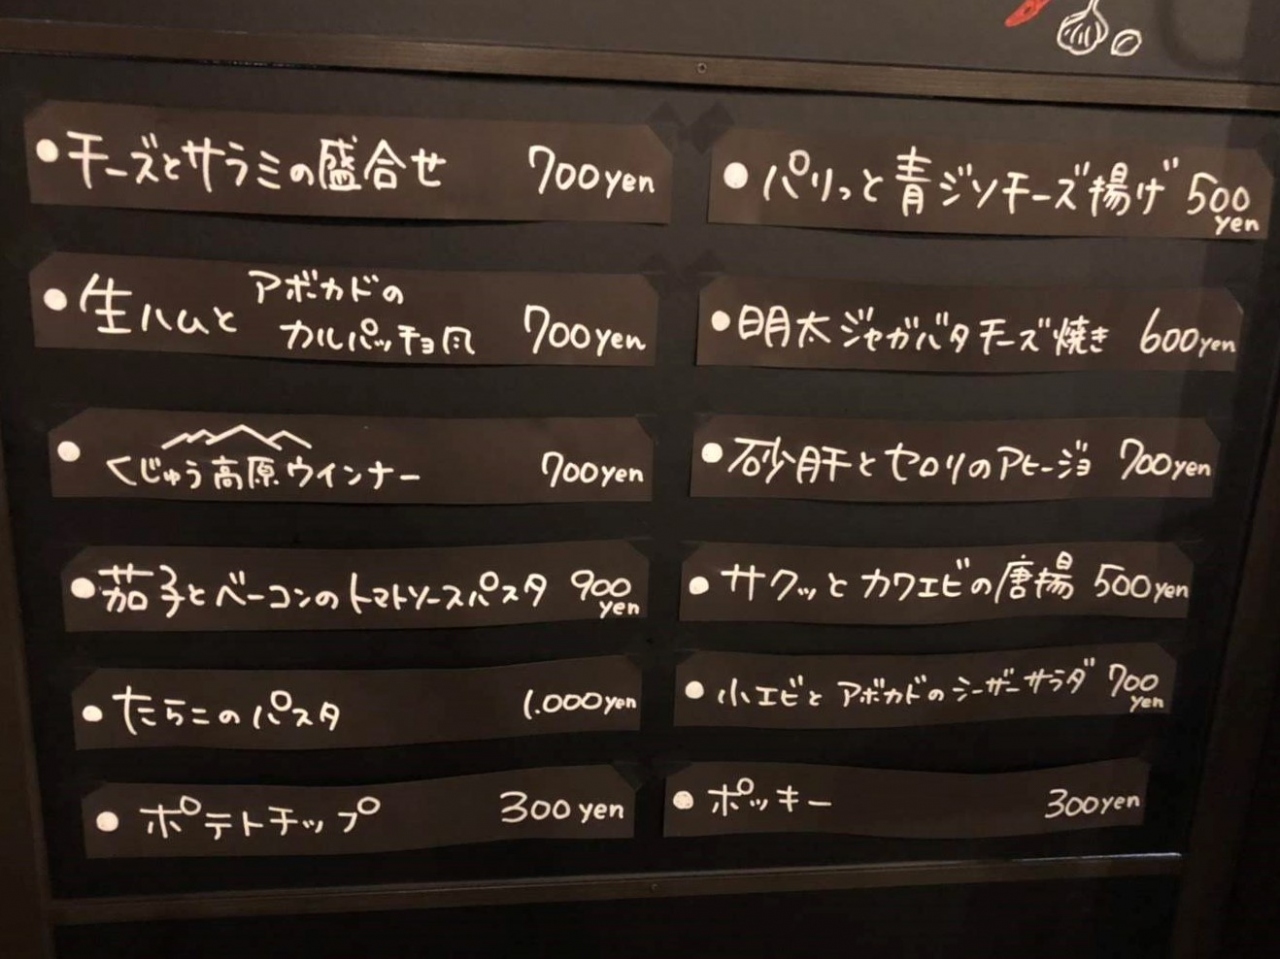 ●チーズとサラミの盛合せ 700yen
●生ハムとアボカドの
カルパッチョ風 700yen
●くじゅう高原ウインナー 700yen
●茄子とベーコンのトマトソースパスタ 900
yen
●たらこのパスタ 1.000yen
●ポテトチップ 300yen
●パリっと青ジソチーズ揚げ 500
yen
●明太ジャガバタチーズ焼き 600yen
●砂肝とセロリのアヒージョ 700yen
●サクッとカワエビの唐揚 500yen
●小エビとアボカドのシーザーサラダ 700
yen
●ポッキー 300yen